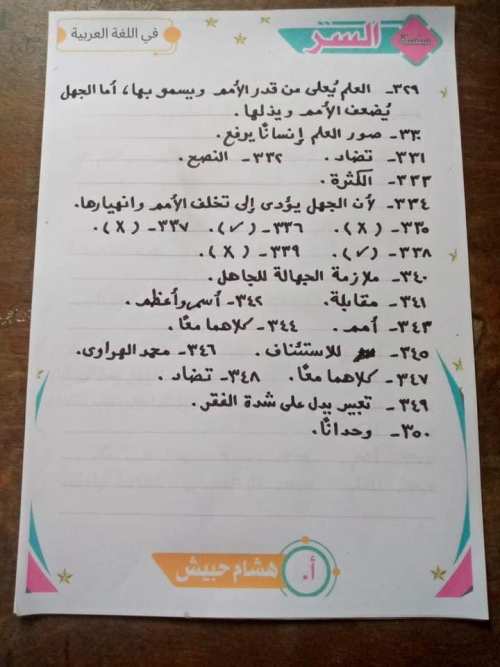 سلسلة السنتر
في اللغة العربية
٣٢٩- العلم يُعلى من قدر الأمم ويسمو بها، أما الجهل
يُضعف الأمم ويذلها.
٣٣٠- صور العلم إنسانًا يرفع.
٣٣١- تضاد. ٣٣٢- النصح.
٣٣٣- الكثرة.
٣٣٤- لأن الجهل يؤدى إلى تخلف الأمم وانهيارها.
٣٣٥- (X). ٣٣٦- (✓). ٣٣٧- (X).
٣٣٨- (✓). ٣٣٩- (X).
٣٤٠- ملازمة الجهالة للجاهل.
٣٤١- مقابلة. ٣٤٢- أسمى وأعظم.
٣٤٣- أمم. ٣٤٤- كلاهما معًا.
٣٤٥- للاستئناف. ٣٤٦- محمد الهراوى.
٣٤٧- كلاهما معًا. ٣٤٨- تضاد.
٣٤٩- تعبير يدل على شدة الفقر.
٣٥٠- وحدانًا.
أ. هشام حبيش